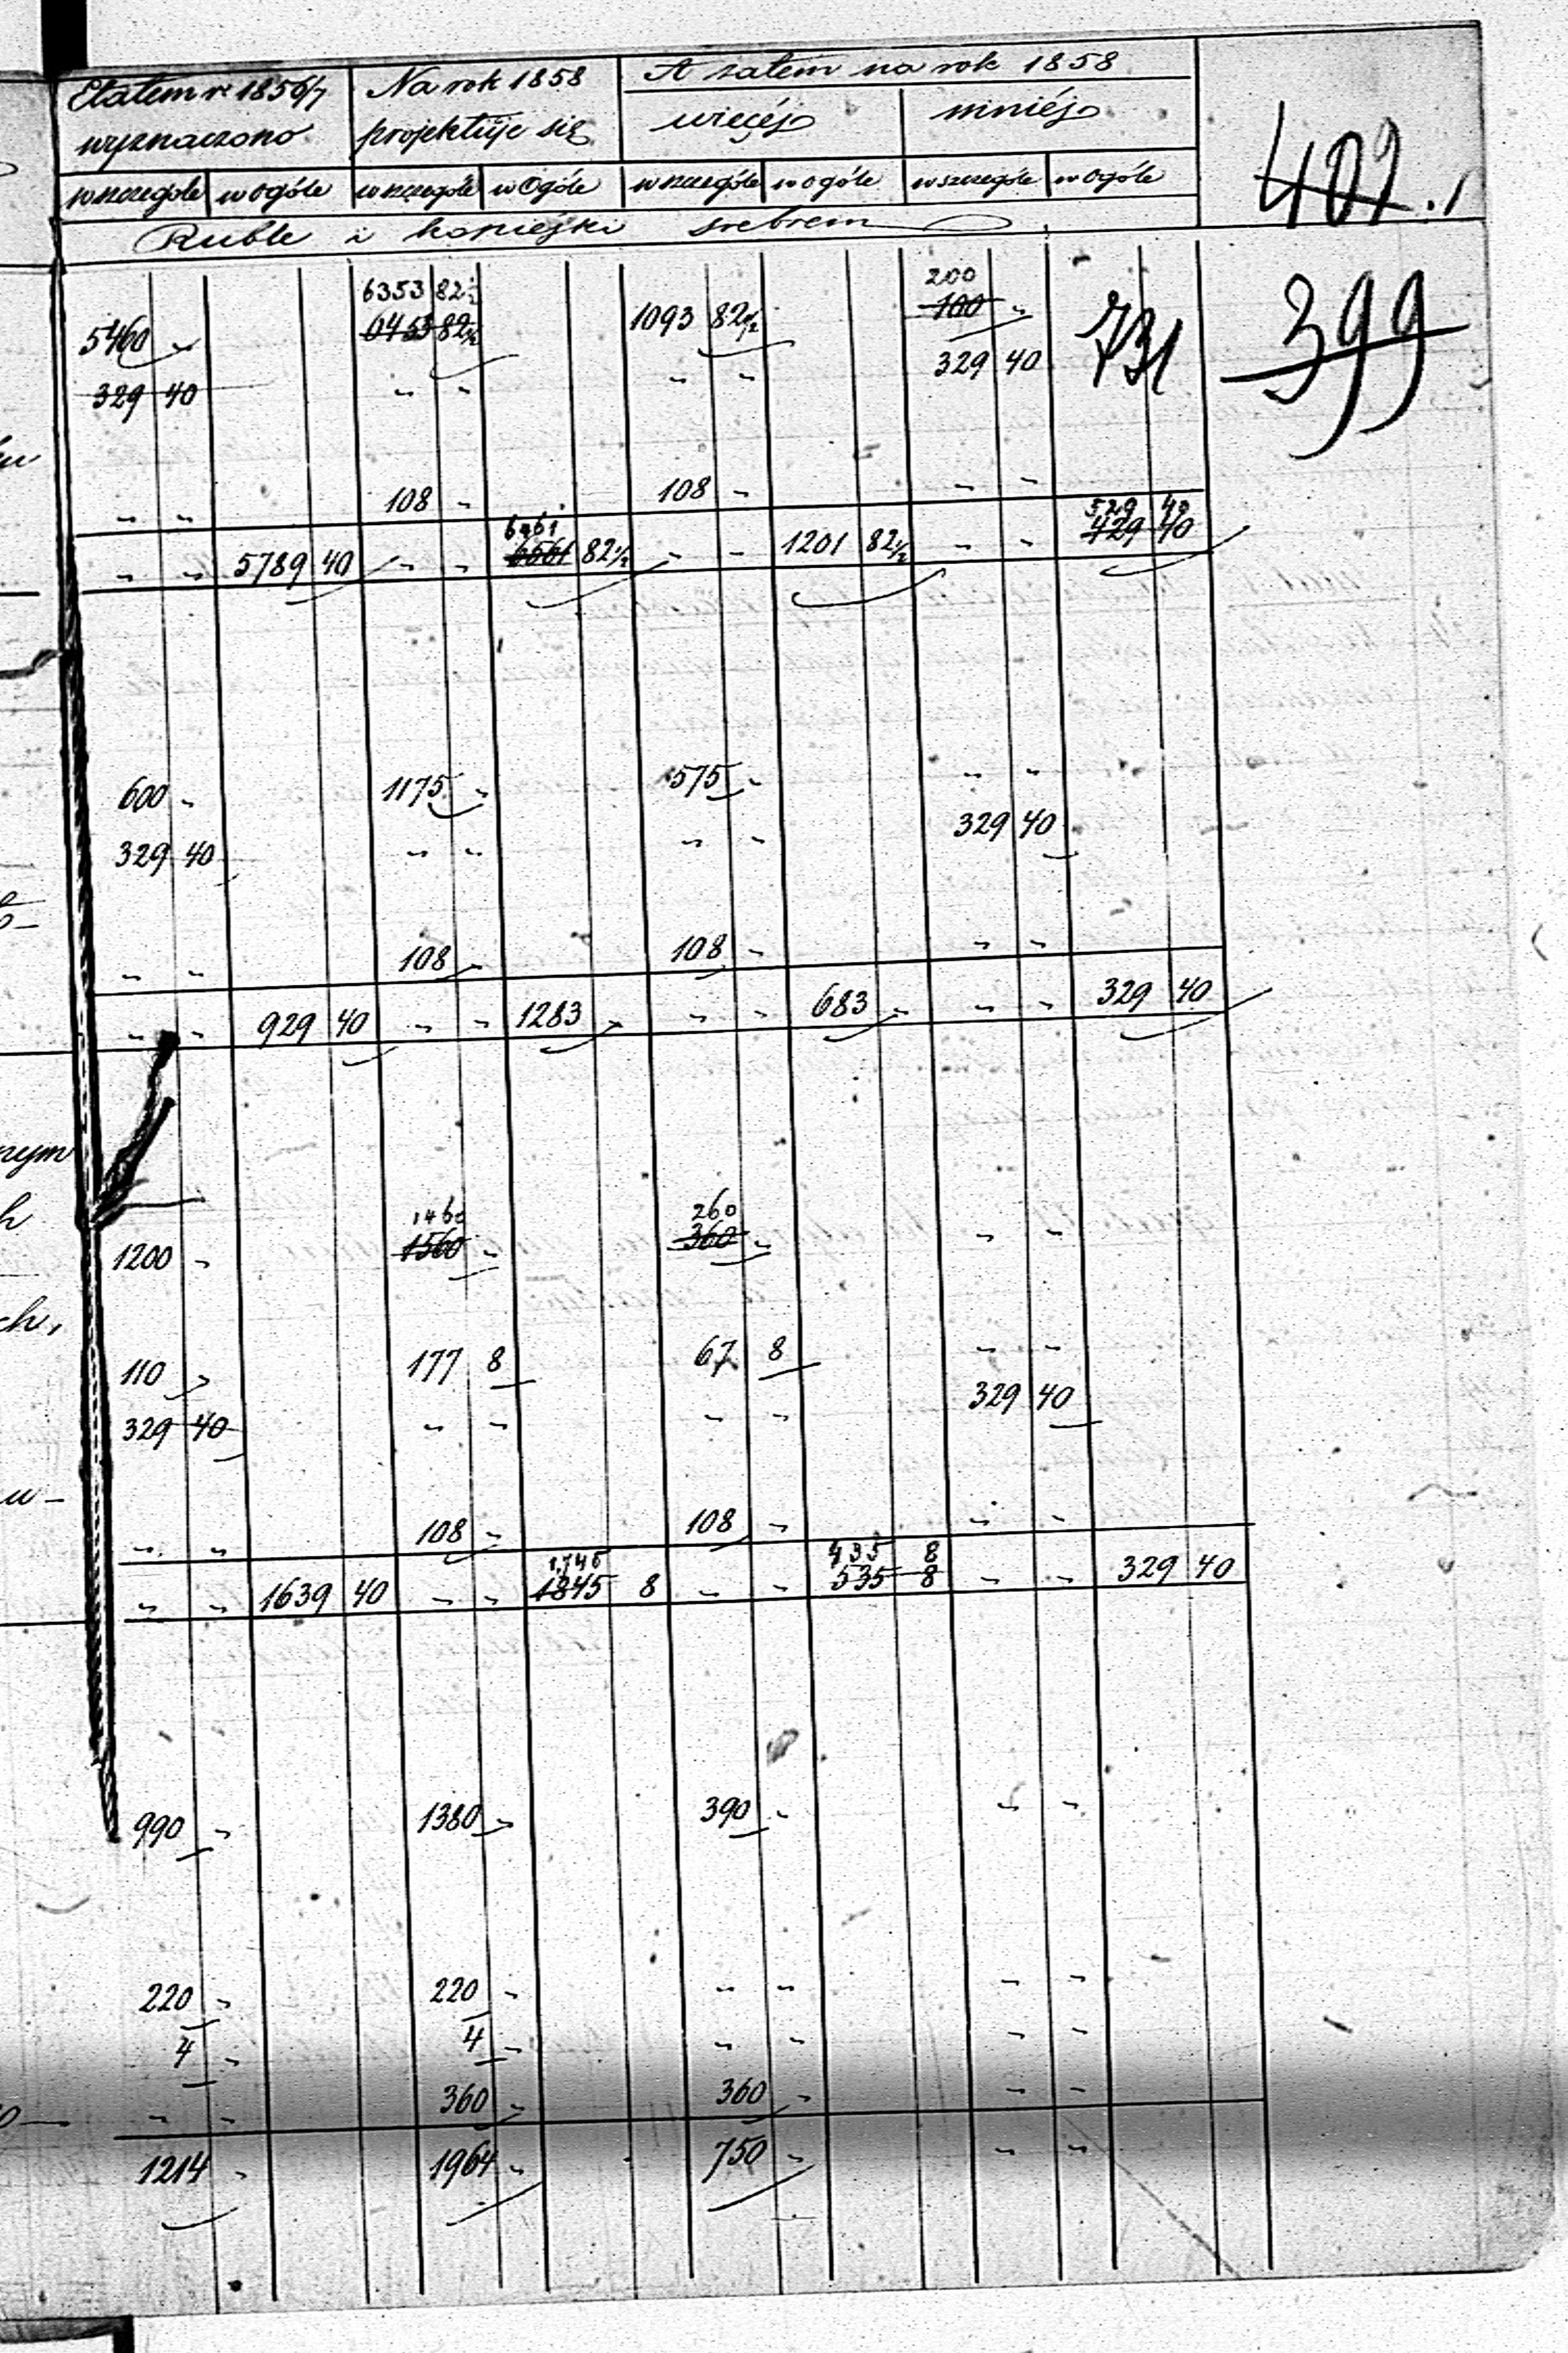 Etatem r. 1856/7 wyznaczono | Na rok 1858 projektuje się | A zatem na rok 1858
więcéj | mniéj
w szczególe | w ogóle | w szczególe | w Ogóle | w szczególe | w ogóle | w szczególe | w ogóle
Ruble i kopiejki srebrem
402.
399
731
6353 82½ | 200
5460 " | 6453 82½ | 1093 82½ | 100 "
329 40 | " " | " " | 329 40
" " | 108 " | 108 " | " "
6461 | 529 40
" " | 5789 40 | " " | 6561 82½ | " " | 1201 82½ | " " | 429 40
600 " | 1175 " | 575 " | " "
329 40 | " " | " " | 329 40
" " | 108 " | 108 " | " "
" " | 929 40 | " " | 1283 " | " " | 683 " | " " | 329 40
nym
h
1460 | 260
1200 " | 1560 " | 360 " | " "
ch,
110 " | 177 8 | 67 8 | " "
329 40 | " " | " " | 329 40
u-
" " | 108 " | 108 " | " "
1745 | 435 8
" " | 1639 40 | " " | 1845 8 | " " | 535 8 | " " | 329 40
990 " | 1380 " | 390 " | " "
220 " | 220 " | " " | " "
4 " | 4 " | " " | " "
" " | 360 " | 360 " | " "
1214 " | 1964 " | 750 " | " "